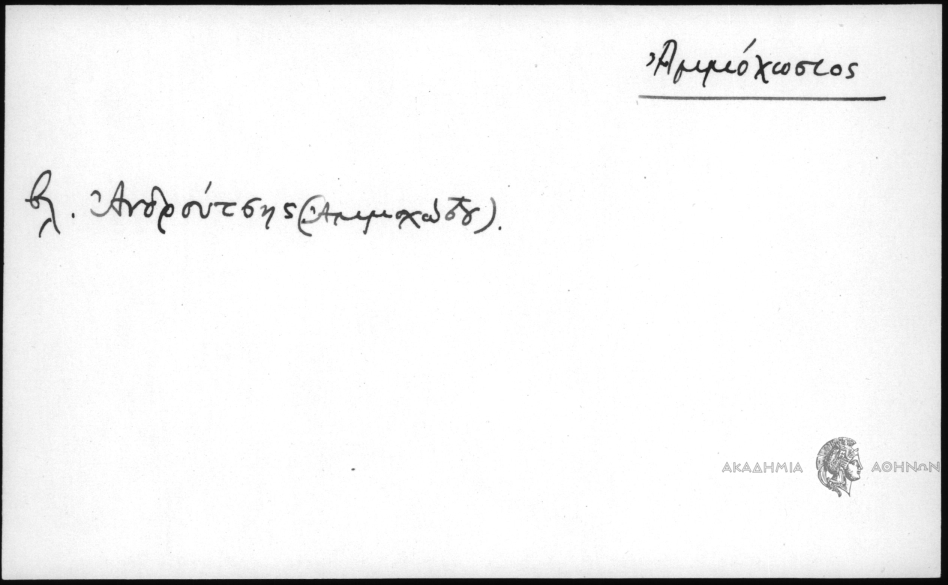 Ἀμμόχωστος
βλ. Ἀνδρούτσης (Ἀμμοχώστου).
ΑΚΑΔΗΜΙΑ ΑΘΗΝΩΝ